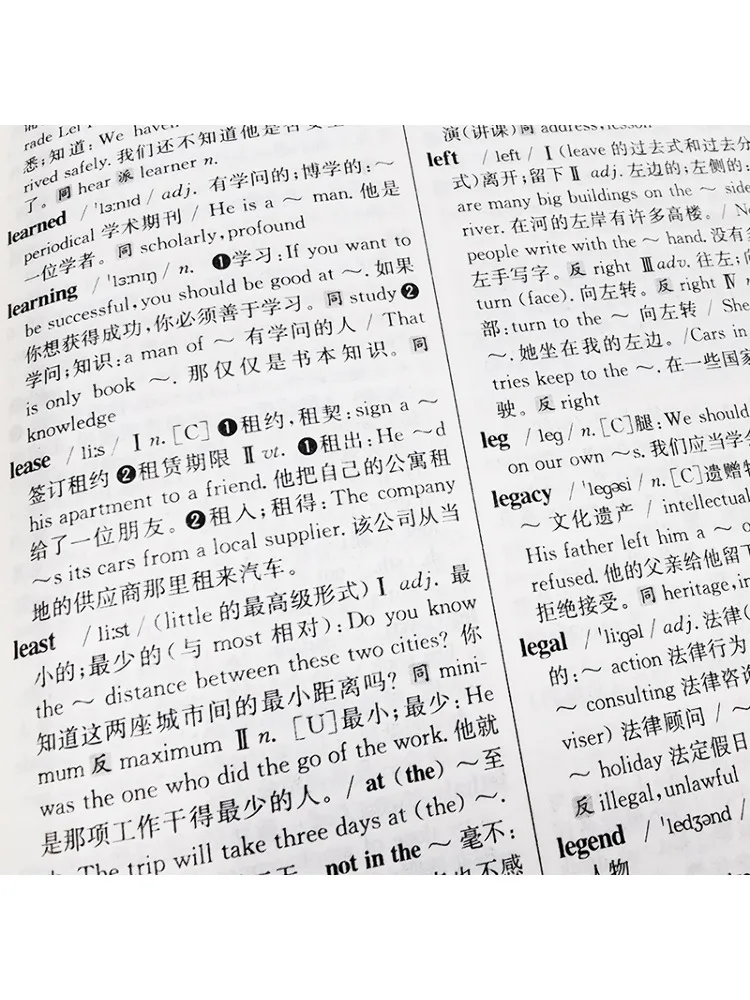 rade Le
悉;知道: We haven
rived safely. 我们还不知道他是否安全
了。同 hear 派 learner n.
learned / 'lɜ:nɪd / adj. 有学问的;博学的: ～
periodical 学术期刊 / He is a ～ man. 他是
一位学者。同 scholarly, profound
learning / 'lɜ:nɪŋ / n. ❶学习: If you want to
be successful, you should be good at ～. 如果
你想获得成功,你必须善于学习。同 study ❷
学问;知识: a man of ～ 有学问的人 / That
is only book ～. 那仅仅是书本知识。同
knowledge
lease / li:s / Ⅰ n. [C] ❶租约,租契: sign a ～
签订租约 ❷租赁期限 Ⅱ vt. ❶租出: He ～d
his apartment to a friend. 他把自己的公寓租
给了一位朋友。❷租入;租得: The company
～s its cars from a local supplier. 该公司从当
地的供应商那里租来汽车。
least / li:st / (little 的最高级形式) Ⅰ adj. 最
小的;最少的(与 most 相对): Do you know
the ～ distance between these two cities? 你
知道这两座城市间的最小距离吗? 同 mini-
mum 反 maximum Ⅱ n. [U]最小;最少: He
was the one who did the go of the work. 他就
是那项工作干得最少的人。/ at (the) ～至
The trip will take three days at (the) ～.
not in the ～ 毫不:
也不感
演(讲课) 同 address, lesson
left / left / Ⅰ (leave 的过去式和过去分
式)离开;留下 Ⅱ adj. 左边的;左侧的:
are many big buildings on the ～ side
river. 在河的左岸有许多高楼。/ No
people write with the ～ hand. 没有多
左手写字。反 right Ⅲ adv. 往左;向
turn (face). 向左转。反 right Ⅳ n
部: turn to the ～ 向左转 / She
～. 她坐在我的左边。/Cars in
tries keep to the ～. 在一些国家
驶。反 right
leg / leg / n. [C]腿: We should
on our own ～s. 我们应当学会
legacy / 'legəsi / n. [C]遗赠
～ 文化遗产 / intellectual
His father left him a ～
refused. 他的父亲给他留下
拒绝接受。同 heritage, in
legal / 'li:gəl / adj. 法律(
的: ～ action 法律行为
～ consulting 法律咨询
viser) 法律顾问 / ～
～ holiday 法定假日
反 illegal, unlawful
legend / 'ledʒənd /
人物